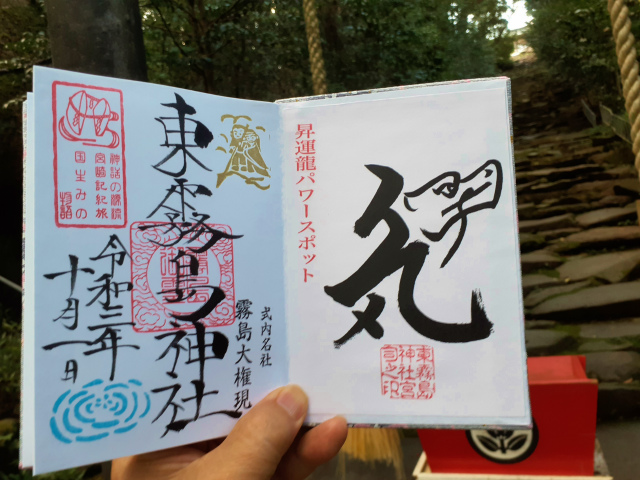 東霧島神社
式内名社
霧島大権現
令和二年
十月一日
神話の源流
宮崎記紀旅
国生みの
物語
昇運龍パワースポット
気
東霧島
神社宮
司之印